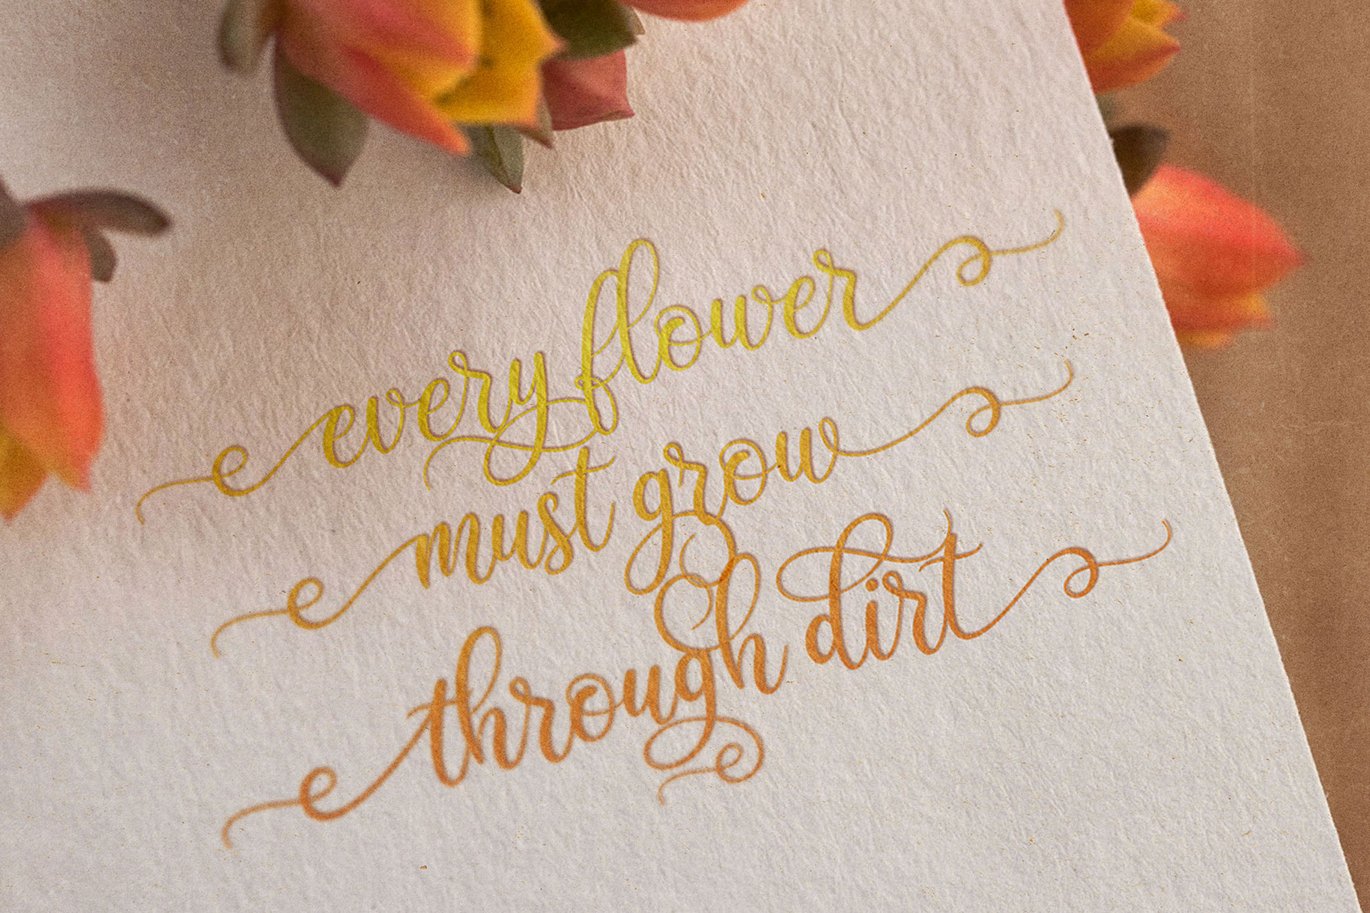 every flower
must grow
through dirt